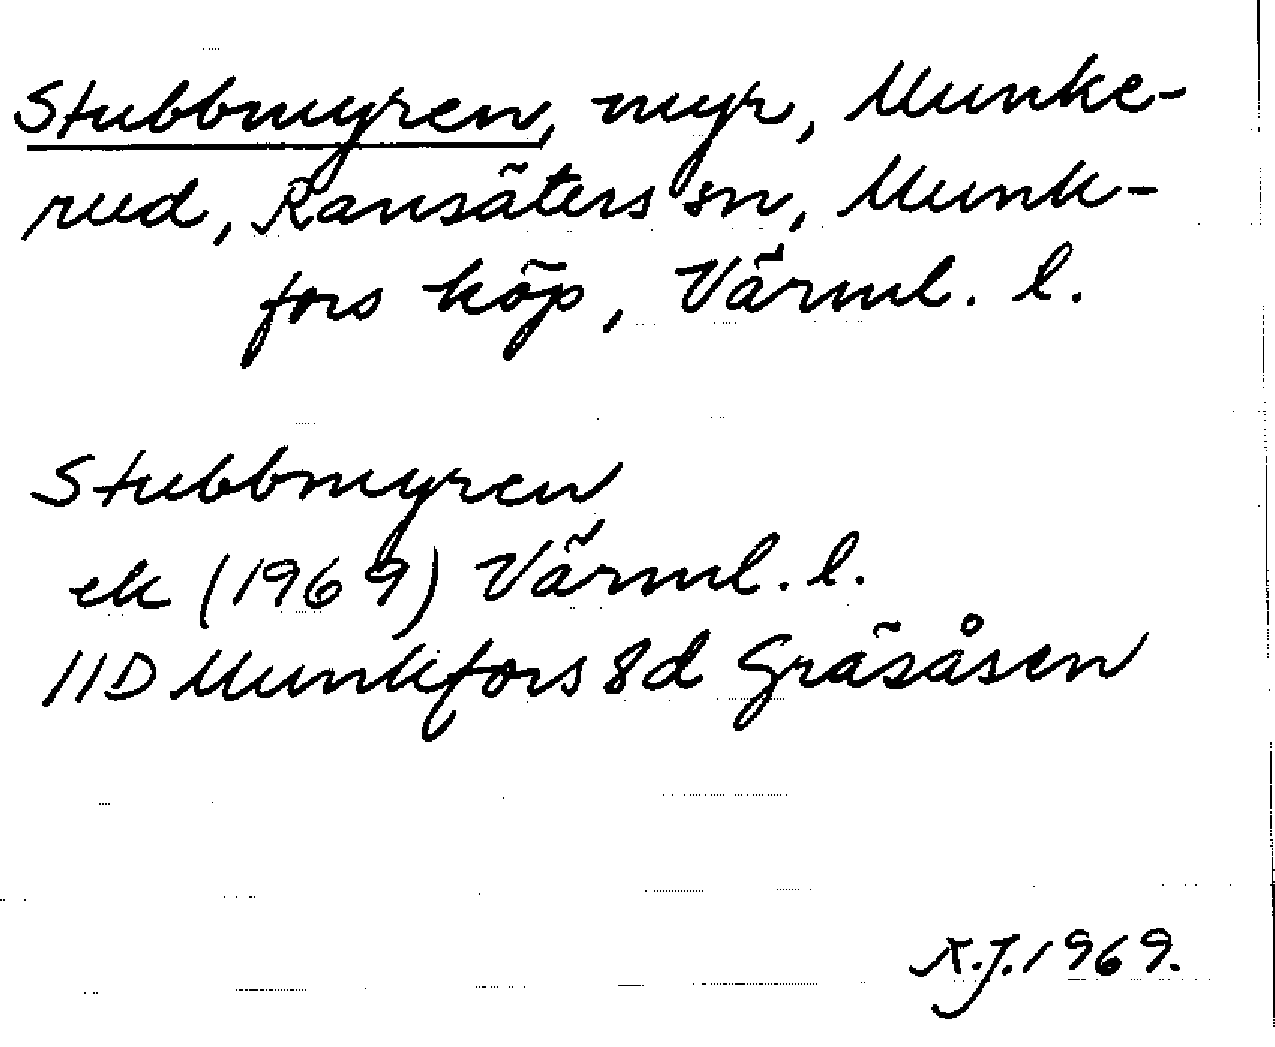 Stubbmyren, myr, Munke-
rud, Ransäters sn, Munk-
fors köp, Värml. l.
Stubbmyren
ek (1969) Värml. l.
11D Munkfors 8d Gräsåsen
K.J. 1969.